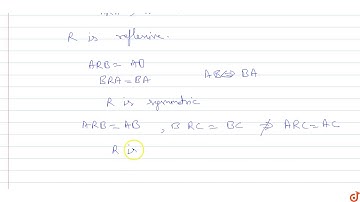 R is reflexive.
ARB = AB
BRA = BA
AB ⇔ BA
R is symmetric
ARB = AB , BRC = BC ⇏ ARC = AC
R is